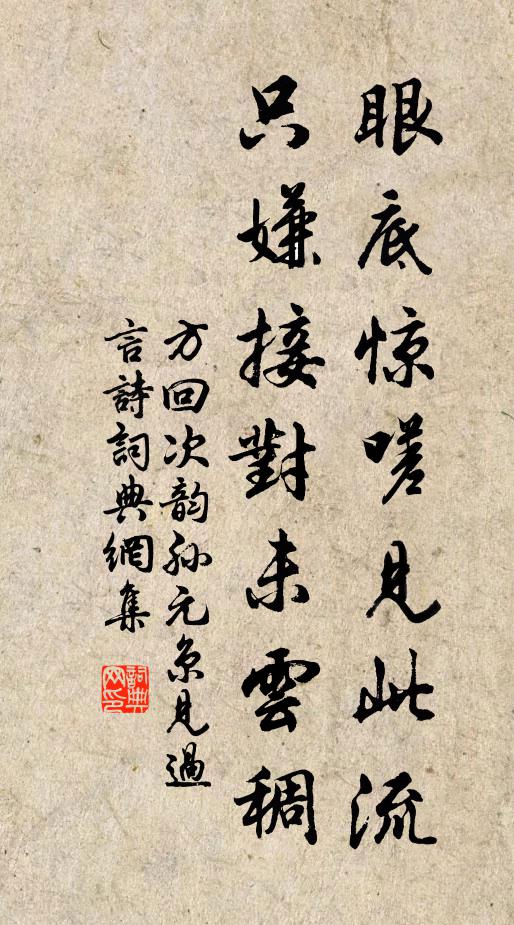 眼底惊嗟見此流
只嫌接對未雲稠
方回次韵孙元京見過
言詩詞典網集
詞典
网印